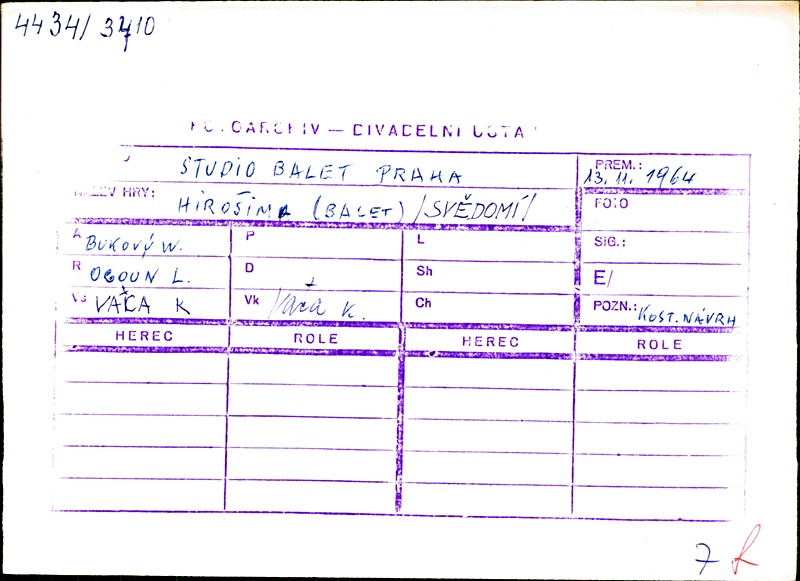 4434/ 3710
FOTOARCHIV — DIVADELNÍ ÚSTA
STUDIO BALET PRAHA
PREM.: 13. 11. 1964
NÁZEV HRY: HIROŠIMA (BALET) /SVĚDOMÍ/
FOTO
A BUKOVÝ W.
P
L
SIG.:
R OGOUN L.
D
Sh
E/
Vs VÁČA K
Vk Váča K.
Ch
POZN.: KOST. NÁVRH
HEREC
ROLE
HEREC
ROLE
7